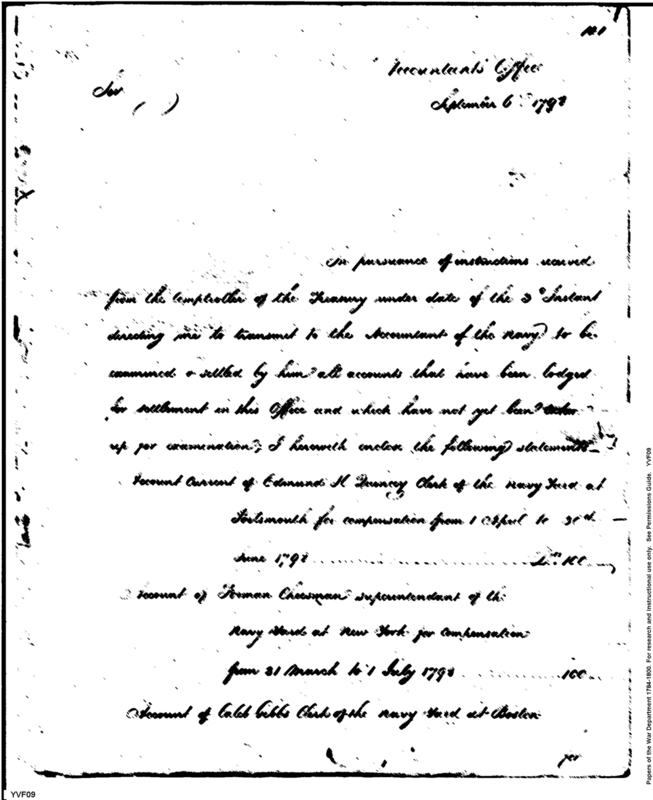 Accountants Office
Sir
September 6th 1798
In pursuance of instructions received
from the Comptroller of the Treasury under date of the 3d Instant
directing me to transmit to the Accountant of the Navy to be
examined & settled by him all accounts that have been lodged
for settlement in this Office and which have not yet been taken
up for examination; I herewith enclose the following statements
Account Current of Edmund H Quincy Clerk of the Navy Yard at
Portsmouth for compensation from 1 April to 30th
June 1798
Account of Forman Cheesman Superintendant of the
Navy Yard at New York for compensation
from 31 March to 1 July 1798 100
Account of Caleb Gibbs Clerk of the Navy Yard at Boston
for
YVF09
Papers of the War Department 1784-1800. For research and instructional use only. See Permissions Guide. YVF09